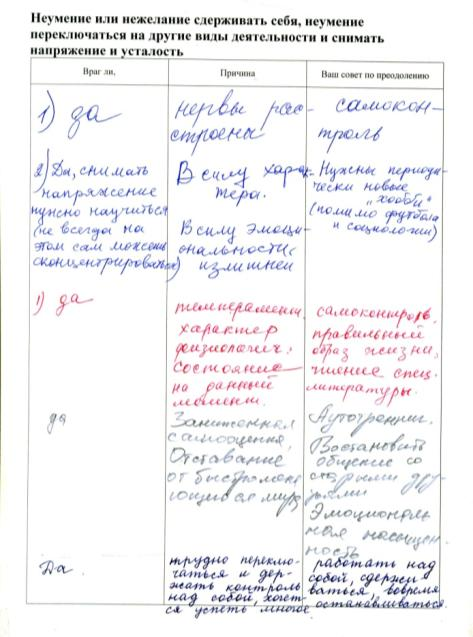 Неумение или нежелание сдерживать себя, неумение
переключаться на другие виды деятельности и снимать
напряжение и усталость
Враг ли,
Причина
Ваш совет по преодолению
1) да
нервы рас-
строены
самокон-
троль
2) Да, снимать
напряжение
нужно научиться
(не всегда на
этом сам можешь
сконцентрироваться)
В силу харак-
тера.
В силу эмоци-
ональности
излишней
Нужны периоди-
чески новые
"хобби"
(помимо футбола
и социологии)
1) да
темперамент,
характер
физиологич.
состояние
на данный
момент.
самоконтроль,
правильный
образ жизни,
чтение спец.
литературы.
да
Заниженная
самооценка,
Отставание
от быстроменя
ющигося мира
Аутотренинг.
Востановить
общение со
старыми дру-
зьями
Эмоциональ
ная насыщен-
ность
Да.
трудно переклю-
чаться и дер-
жать контроль
над собой, хочет-
ся успеть многое
работать над
собой, сдержи
ваться, вовремя
останавливаться.